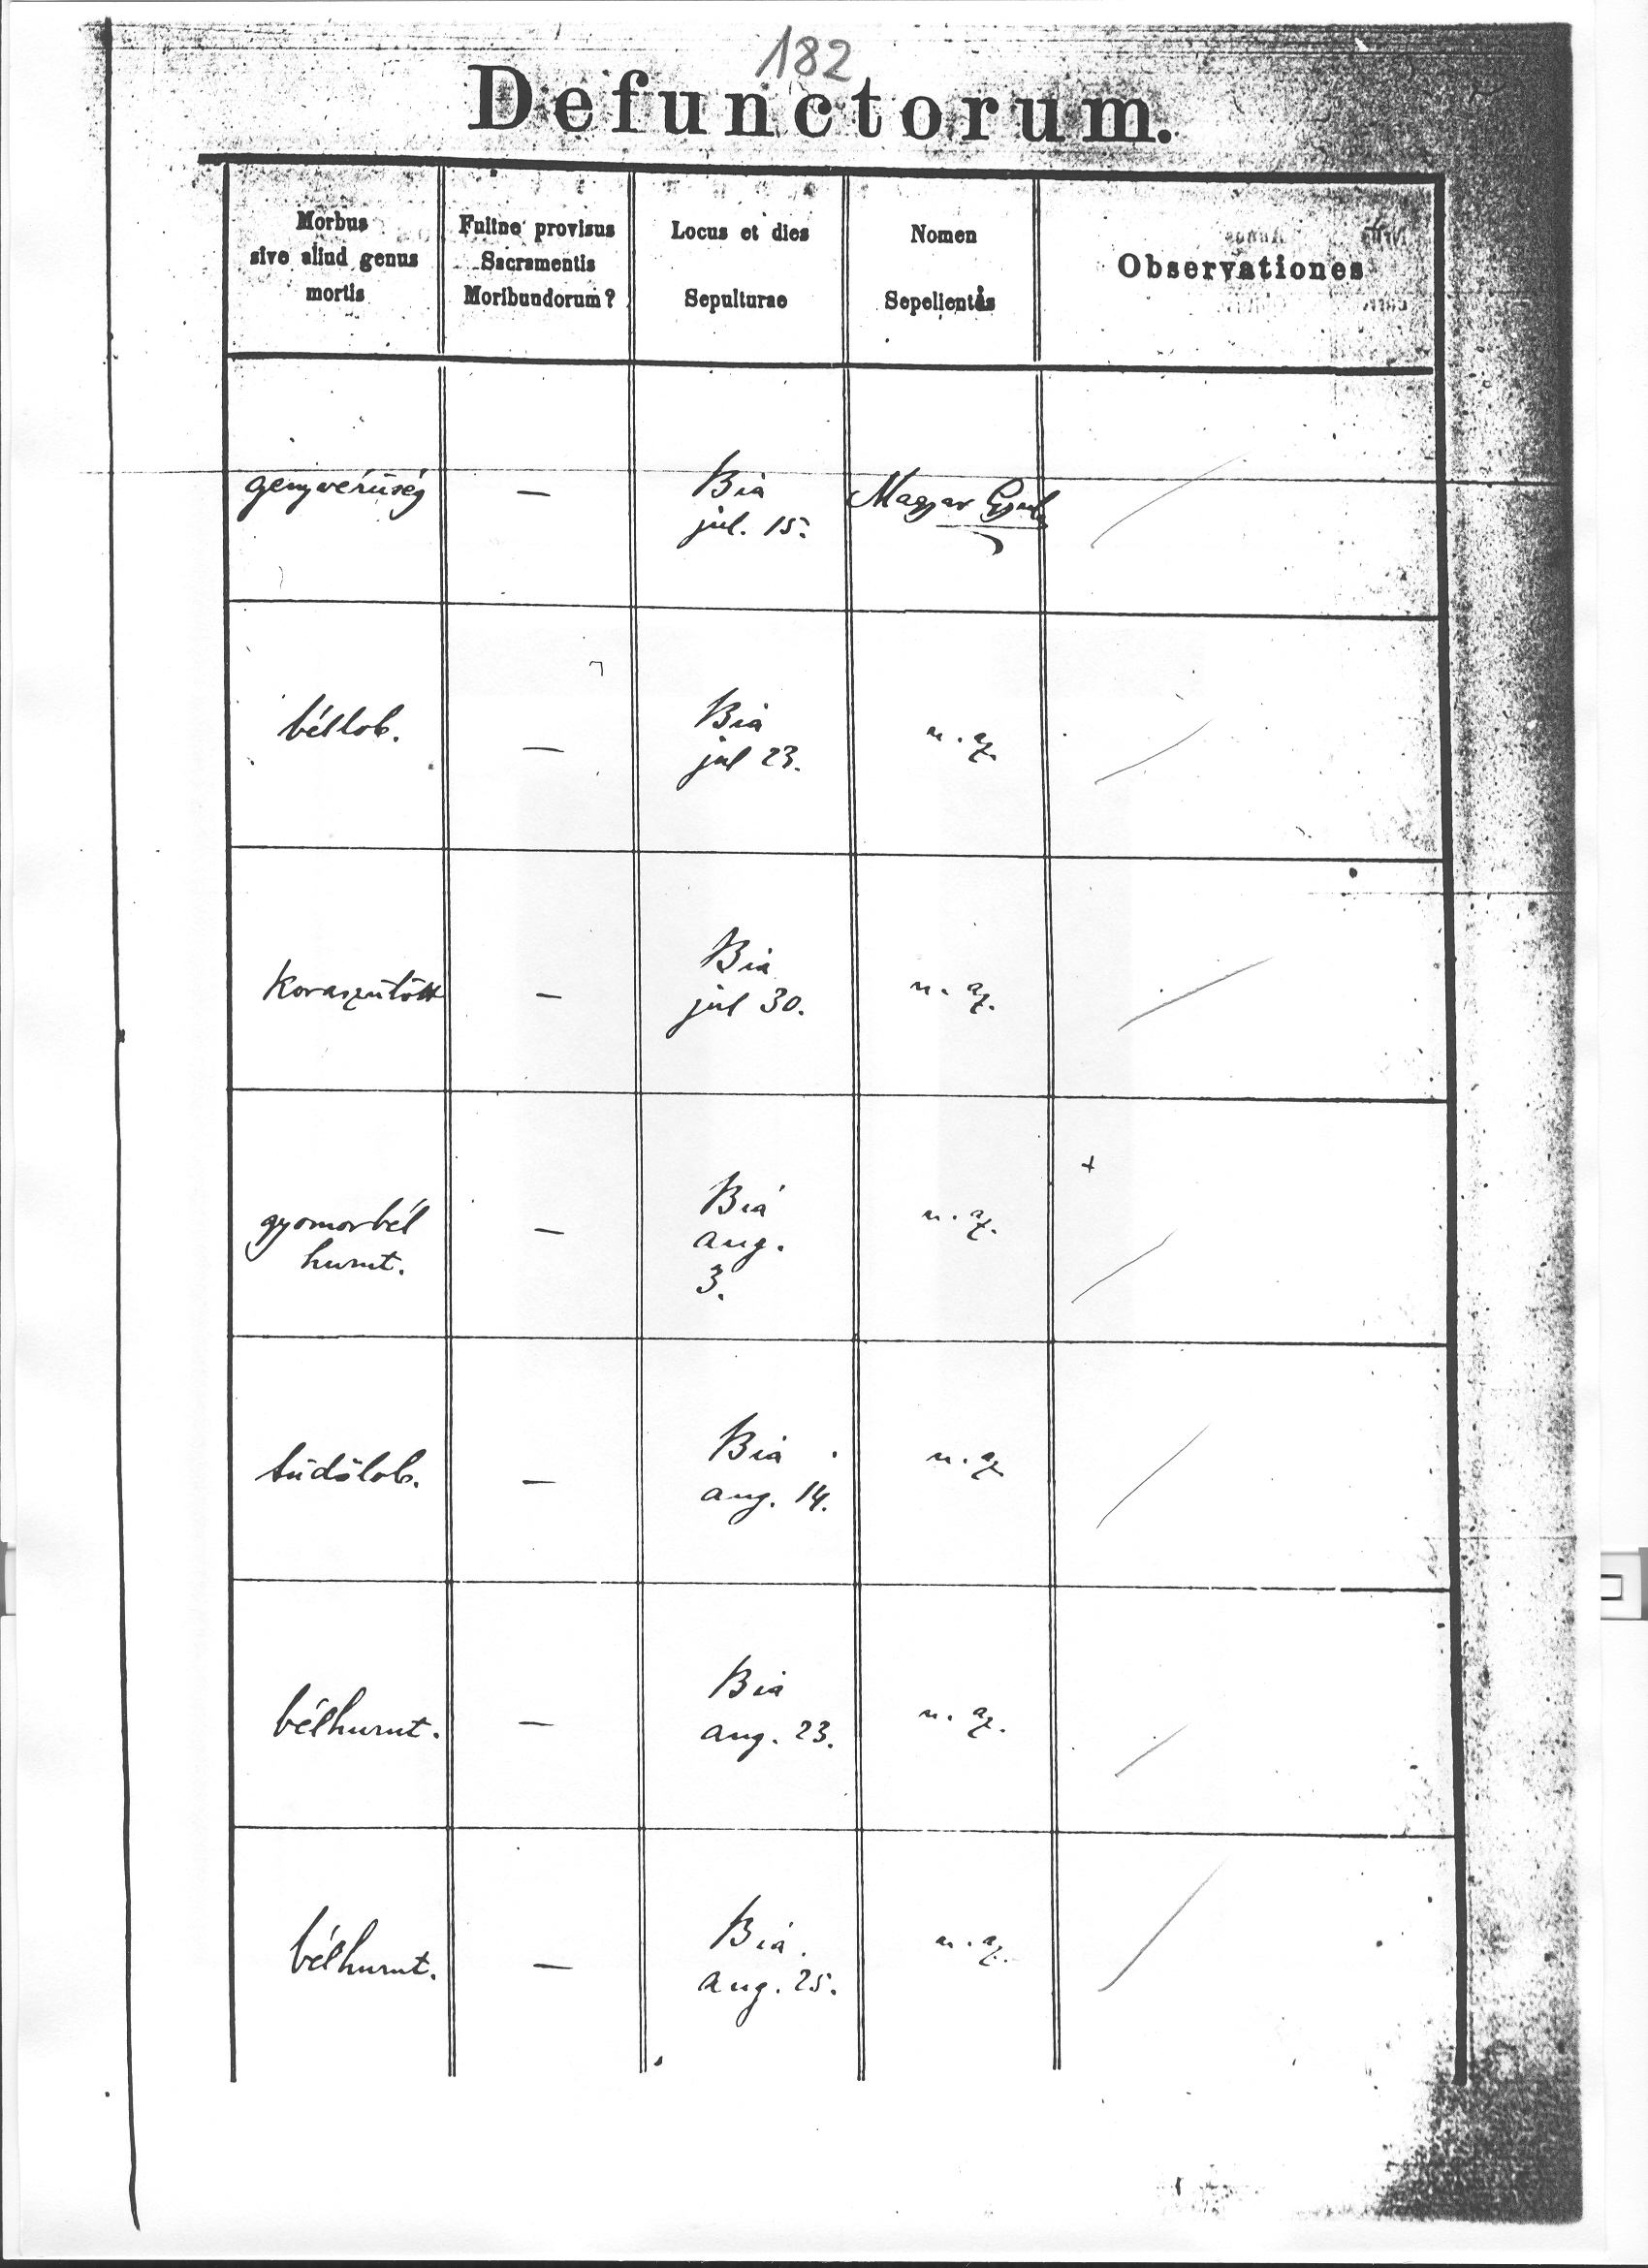 182
Defunctorum.
Morbus
sive aliud genus
mortis
Fuitne provisus
Sacramentis
Moribundorum?
Locus et dies
Sepulturae
Nomen
Sepelientis
Observationes
genyvérüség
—
Bia
júl. 15.
Magyar Gyula
béllob.
—
Bia
júl 23.
u. az.
Koraszülött
—
Bia
júl 30.
u. az.
gyomorbél
hurut.
—
Bia
aug.
3.
u. az.
+
tüdőlob.
—
Bia
aug. 14.
u. az
bélhurut.
—
Bia
aug. 23.
u. az.
bélhurut.
—
Bia.
aug. 25.
u. az.